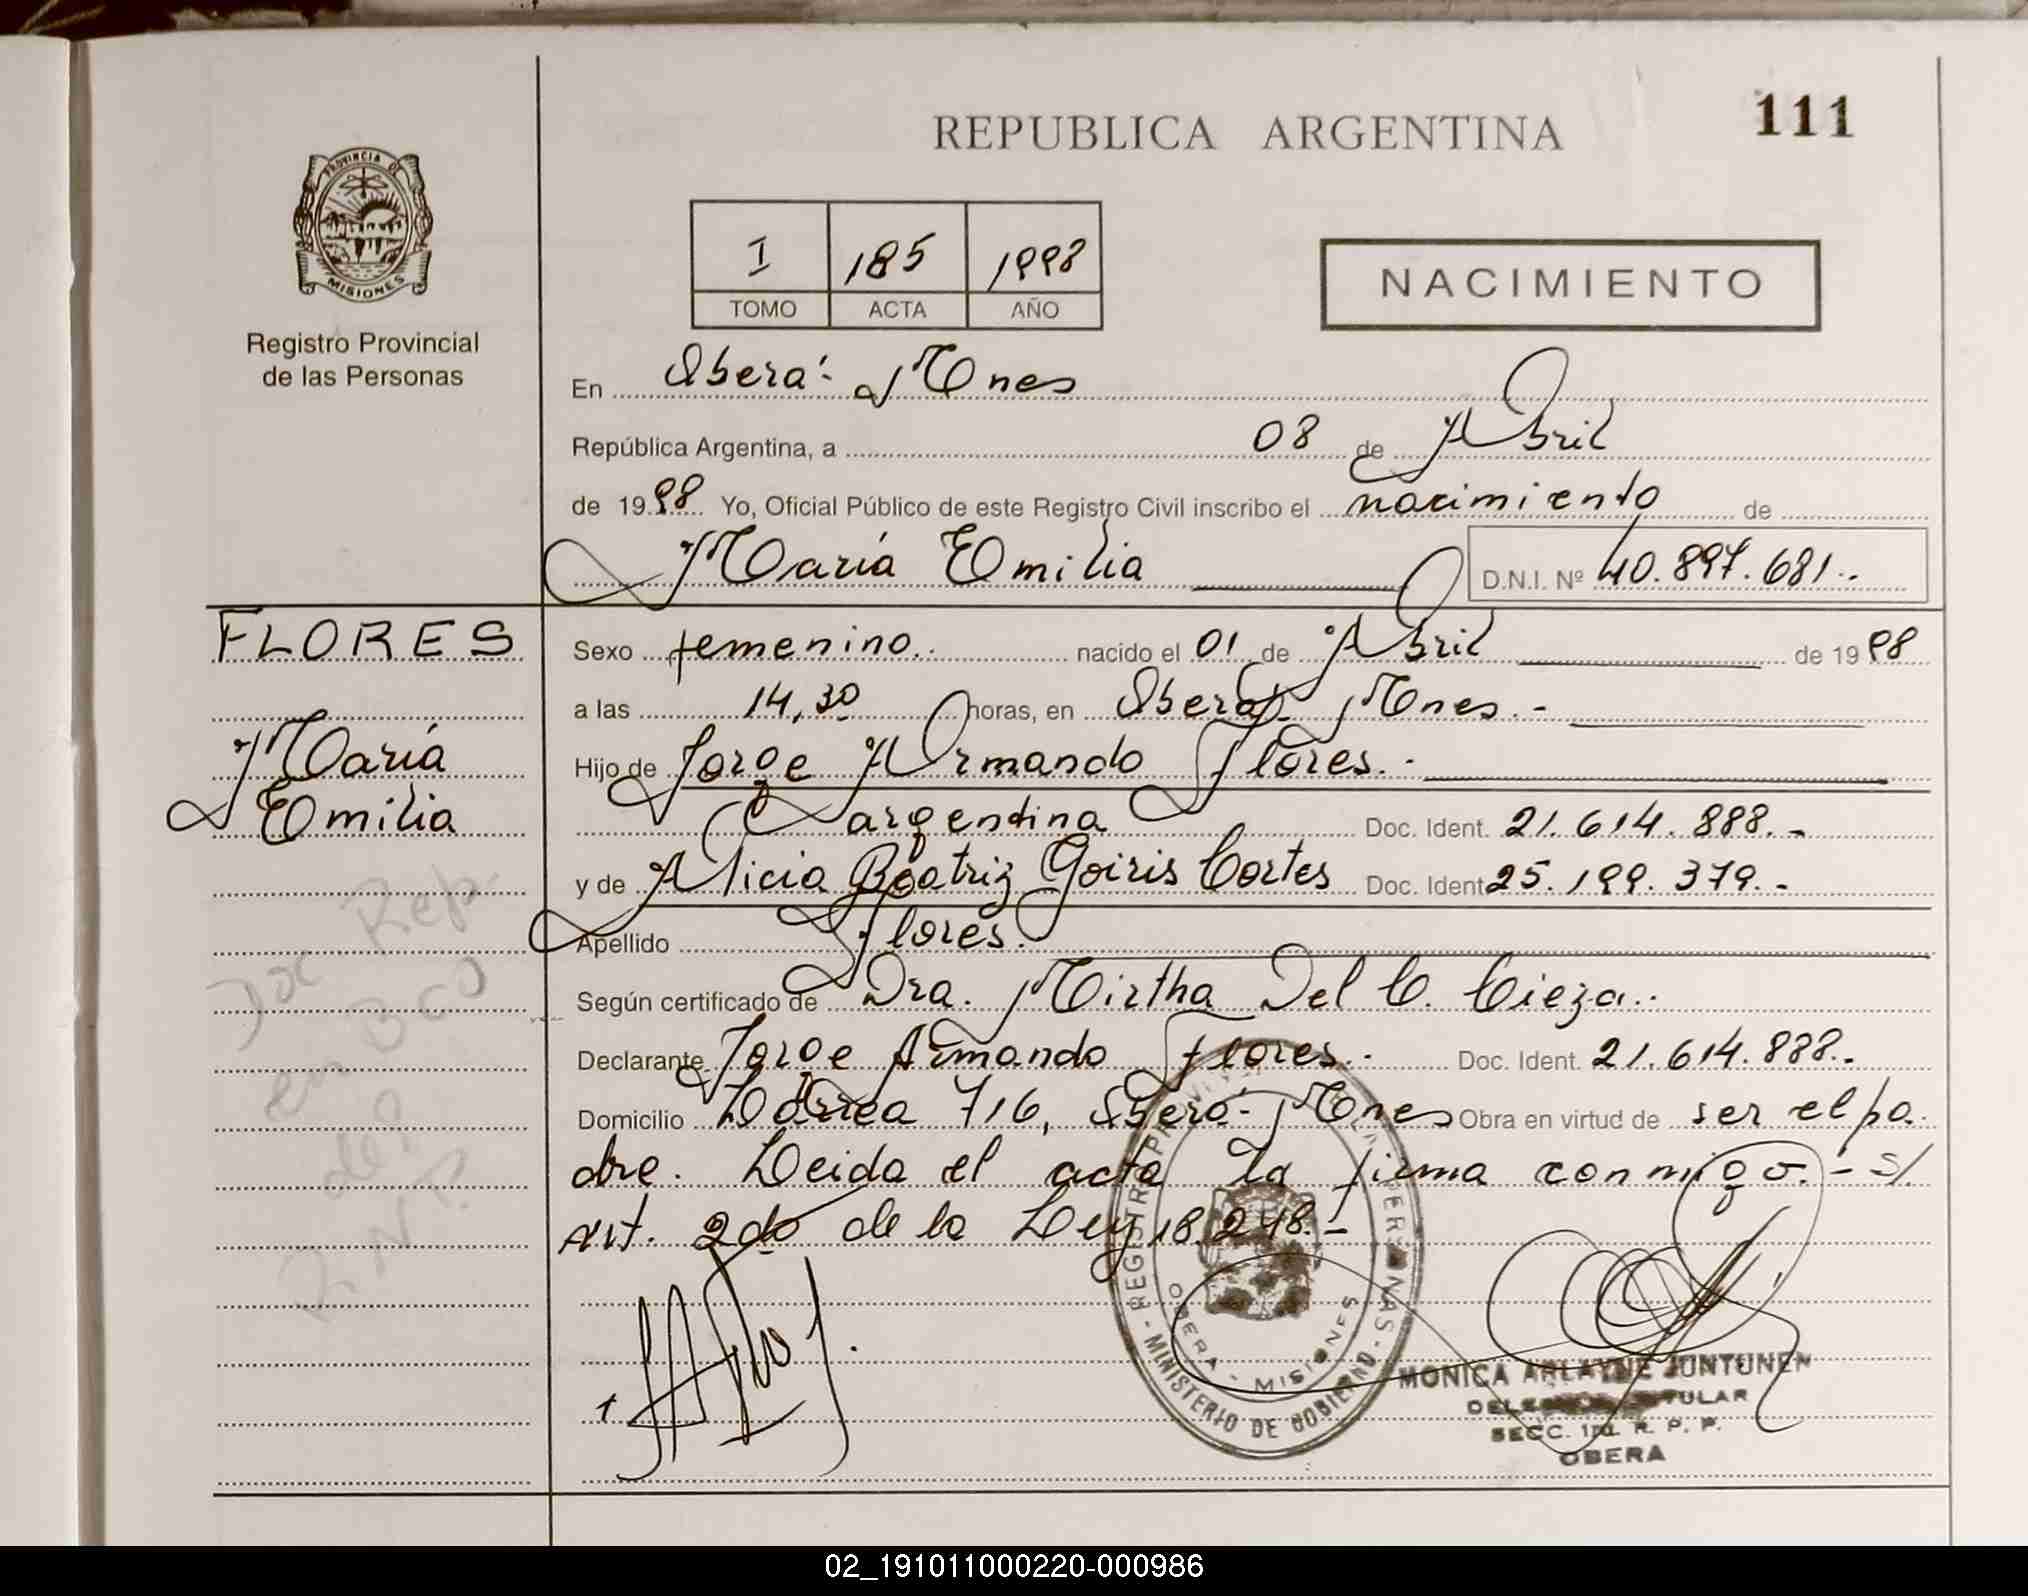 REPUBLICA ARGENTINA
111
PROVINCIA DE
MISIONES
Registro Provincial
de las Personas
I 185 1998
TOMO ACTA AÑO
NACIMIENTO
En Oberá- Mnes
República Argentina, a 08 de Abril
de 1998 Yo, Oficial Público de este Registro Civil inscribo el nacimiento de
María Emilia D.N.I. Nº 40.897.681.-
FLORES
María
Emilia
Sexo femenino. nacido el 01 de Abril de 1998
a las 14,30 horas, en Oberá- Mnes.-
Hijo de Jorge Armando Flores.-
argentina Doc. Ident. 21.614.888.-
y de Alicia Beatriz Goiris Cortes Doc. Ident 25.199.379.-
Apellido Flores.
Según certificado de Dra. Mirtha Del C. Cieza.
Declarante Jorge Armando Flores.- Doc. Ident. 21.614.888.-
Domicilio Larrea 716, Oberá- Mnes Obra en virtud de ser el pa-
dre. Leida el acta la firma conmigo.- s/
art. 2do de la Ley 18.248.-
REGISTRO PROVINCIAL DE LAS PERSONAS
- MINISTERIO DE GOBIERNO -
OBERA - MISIONES
MONICA ARLAYNE JUNTUNEN
TITULAR
SECC. 1ra. R. P. P.
OBERA
02_191011000220-000986